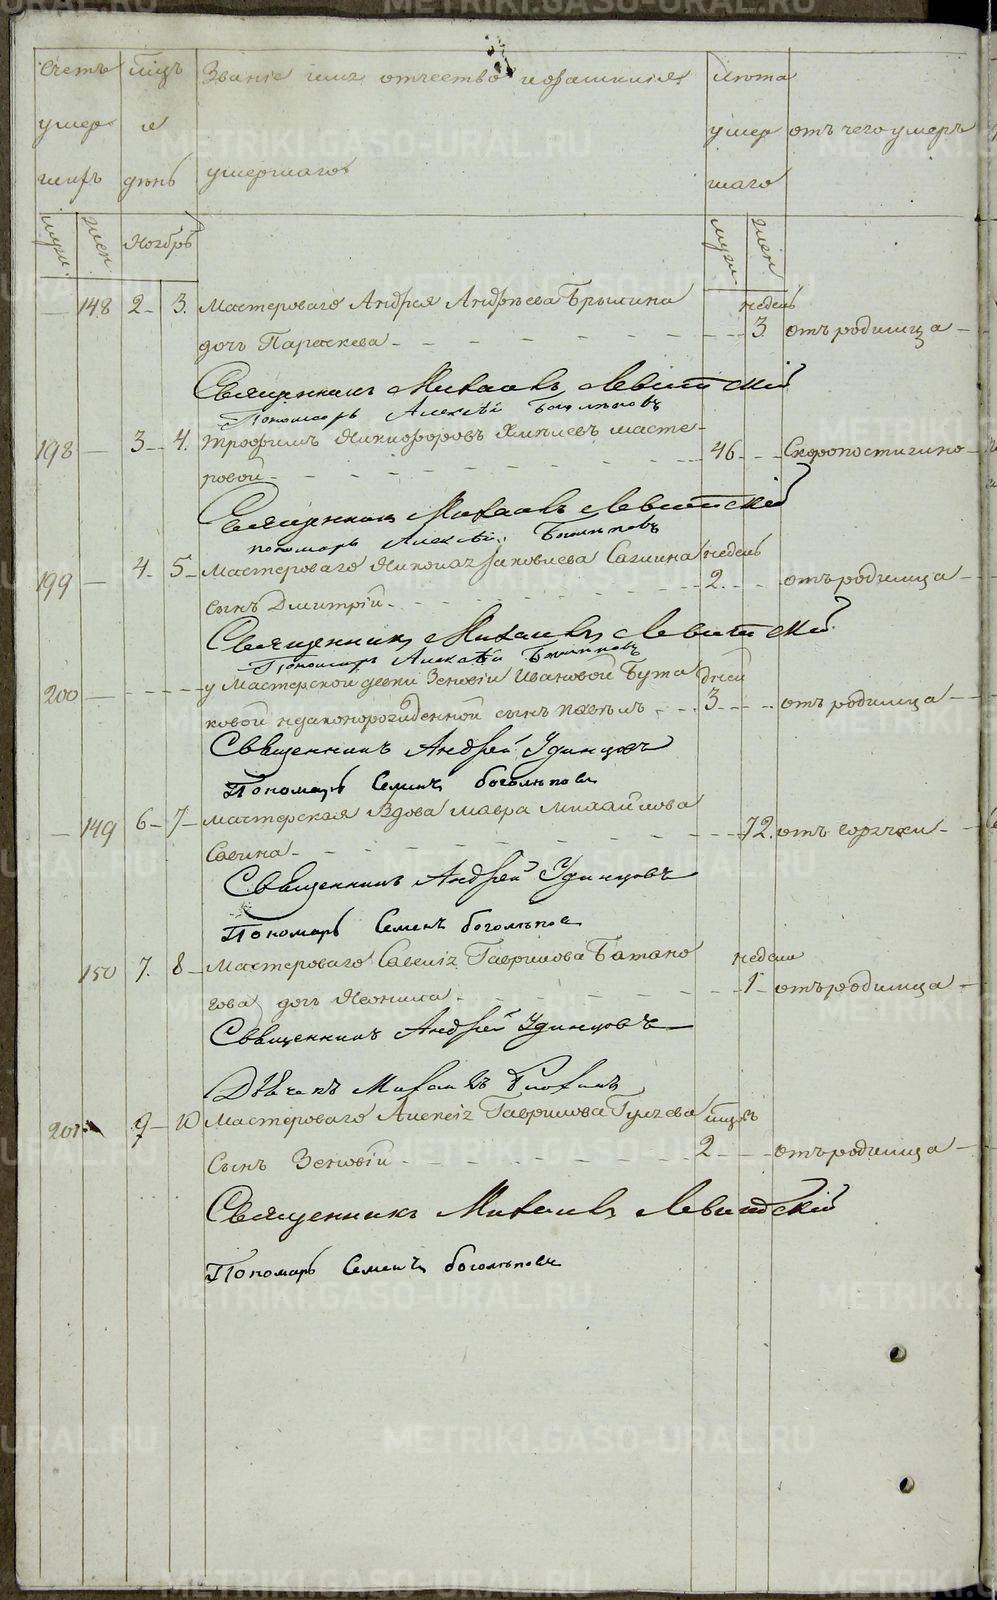 Счетъ умер шихъ
мцъ и день
Званіе имя отчество и фамилія умершаго
Лѣта умер шаго
отъ чего умеръ
муж. жен Ноябрь муж. жен
148 2 3. Мастероваго Андрея Андрѣева недель
дочь Параскева 3 отъ родимца
Священникъ Михаилъ Левитскій
Пономарь Алексѣй Боголѣповъ
198 3 4. Трофимъ Никифоровъ масте-
ровой 46 Скоропостижно
Священникъ Михаилъ Левитскій
пономарь Алексѣй Боголѣповъ
199 4 5 Мастероваго Николая Яковлева недель
сынъ Дмитрій 2 отъ родимца
Священникъ Михаилъ Левитскій
Пономарь Алексѣй Боголѣповъ
200 у Мастерской девки Зеновіи Ивановой Бута дней
ковой незаконорожденной сынъ 3 отъ родимца
Священникъ Андрей Удинцовъ
Пономарь Семенъ боголѣповъ
149 6 7 мастерская Вдова Мавра Михайлова
72. отъ горячки
Священникъ Андрей Удинцовъ
Пономарь Семенъ боголѣпов
150 7. 8 Мастероваго Савелія Гаврилова недели
дочь Леонила 1 отъ родимца
Священникъ Андрей Удинцовъ
Михаилъ
201 9 10 Мастероваго Алексія Гаврилова мцовъ
Сынъ Зеновій 2 отъ родимца
Священникъ Михаилъ Левитскій
Пономарь Семенъ боголѣповъ
METRIKI.GASO-URAL.RU